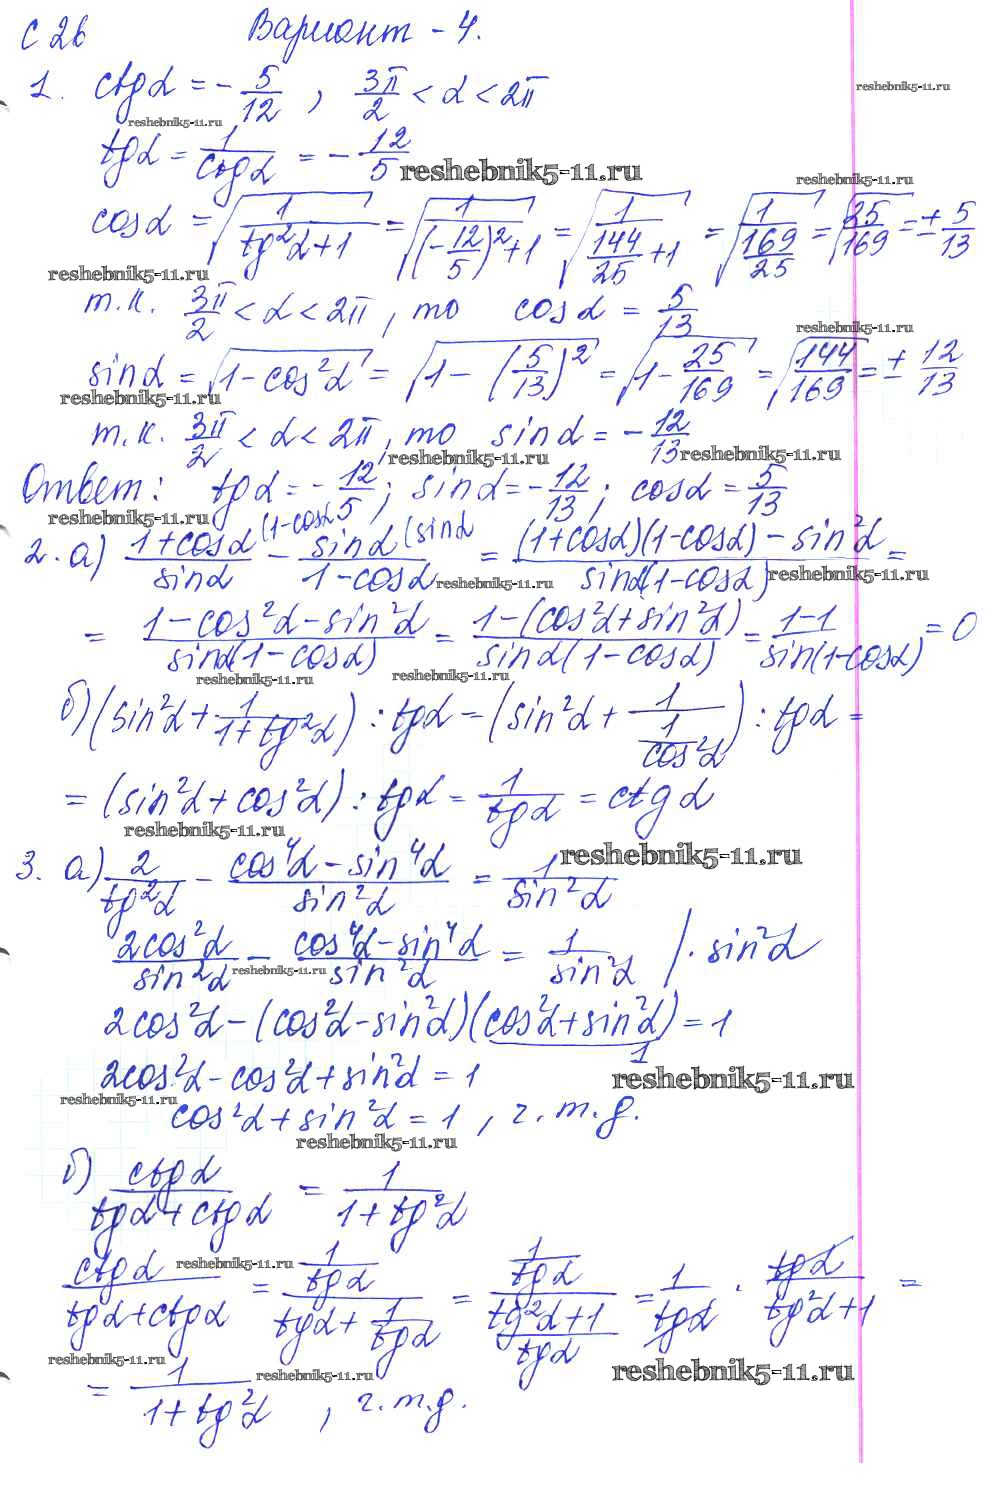 С 26 Вариант - 4.
1. ctgα = - 5/12 , 3π/2 < α < 2π
reshebnik5-11.ru
reshebnik5-11.ru
tgα = 1/ctgα = - 12/5
reshebnik5-11.ru
reshebnik5-11.ru
cosα = √(1/(tg²α+1)) = √(1/((-12/5)²+1)) = √(1/(144/25+1)) = √(1/(169/25)) = √(25/169) = ± 5/13
reshebnik5-11.ru
т.к. 3π/2 < α < 2π, то cosα = 5/13
reshebnik5-11.ru
sinα = √(1-cos²α) = √(1-(5/13)²) = √(1-25/169) = √(144/169) = ± 12/13
reshebnik5-11.ru
т.к. 3π/2 < α < 2π, то sinα = - 12/13
reshebnik5-11.ru reshebnik5-11.ru
Ответ: tgα = - 12/5; sinα = - 12/13; cosα = 5/13
reshebnik5-11.ru
2. а) (1+cosα)/sinα (1-cosα - sinα/(1-cosα) (sinα = ((1+cosα)(1-cosα) - sin²α)/(sinα(1-cosα)) =
reshebnik5-11.ru reshebnik5-11.ru
= (1-cos²α-sin²α)/(sinα(1-cosα)) = (1-(cos²α+sin²α))/(sinα(1-cosα)) = (1-1)/(sin(1-cosα)) = 0
reshebnik5-11.ru reshebnik5-11.ru
б) (sin²α + 1/(1+tg²α)) : tgα = (sin²α + 1/(1/cos²α)) : tgα =
= (sin²α+cos²α) : tgα = 1/tgα = ctgα
reshebnik5-11.ru
3. а) 2/tg²α - (cos⁴α-sin⁴α)/sin²α = 1/sin²α
reshebnik5-11.ru
2cos²α/sin²α - (cos⁴α-sin⁴α)/sin²α = 1/sin²α /·sin²α
reshebnik5-11.ru
2cos²α-(cos²α-sin²α)(cos²α+sin²α) = 1
1
2cos²α-cos²α+sin²α = 1
reshebnik5-11.ru
reshebnik5-11.ru
cos²α+sin²α = 1, ч.т.д.
reshebnik5-11.ru
б) ctgα/(tgα+ctgα) = 1/(1+tg²α)
reshebnik5-11.ru
ctgα/(tgα+ctgα) = (1/tgα)/(tgα+1/tgα) = (1/tgα)/((tg²α+1)/tgα) = 1/tgα · tgα/(tg²α+1) =
reshebnik5-11.ru reshebnik5-11.ru reshebnik5-11.ru
= 1/(1+tg²α), ч.т.д.